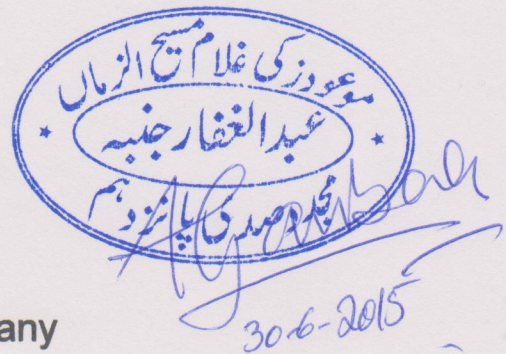 موعود زکی غلام مسیح الزماں
عبدالغفار جنبہ
مجدد صدی پانزدہم
any
30-6-2015